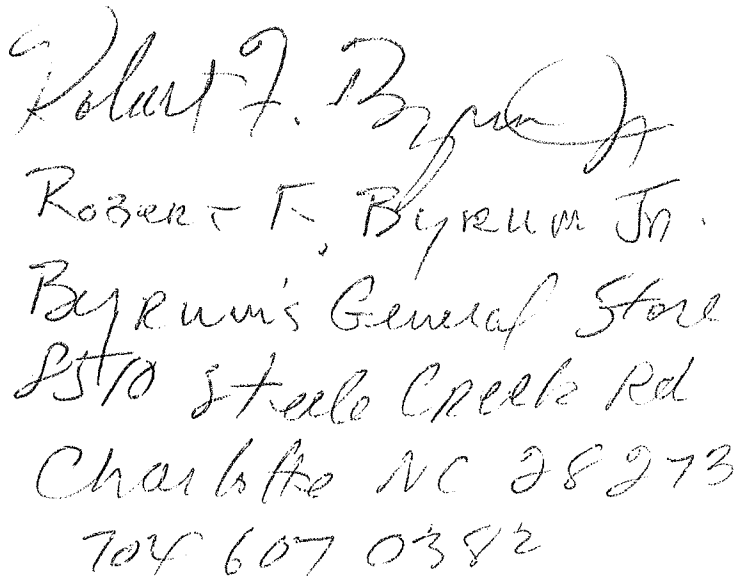 Robert F. Byrum Jr
Robert F. Byrum Jr.
Byrum's General Store
8510 Steele Creek Rd
Charlotte NC 28273
704 607 0382